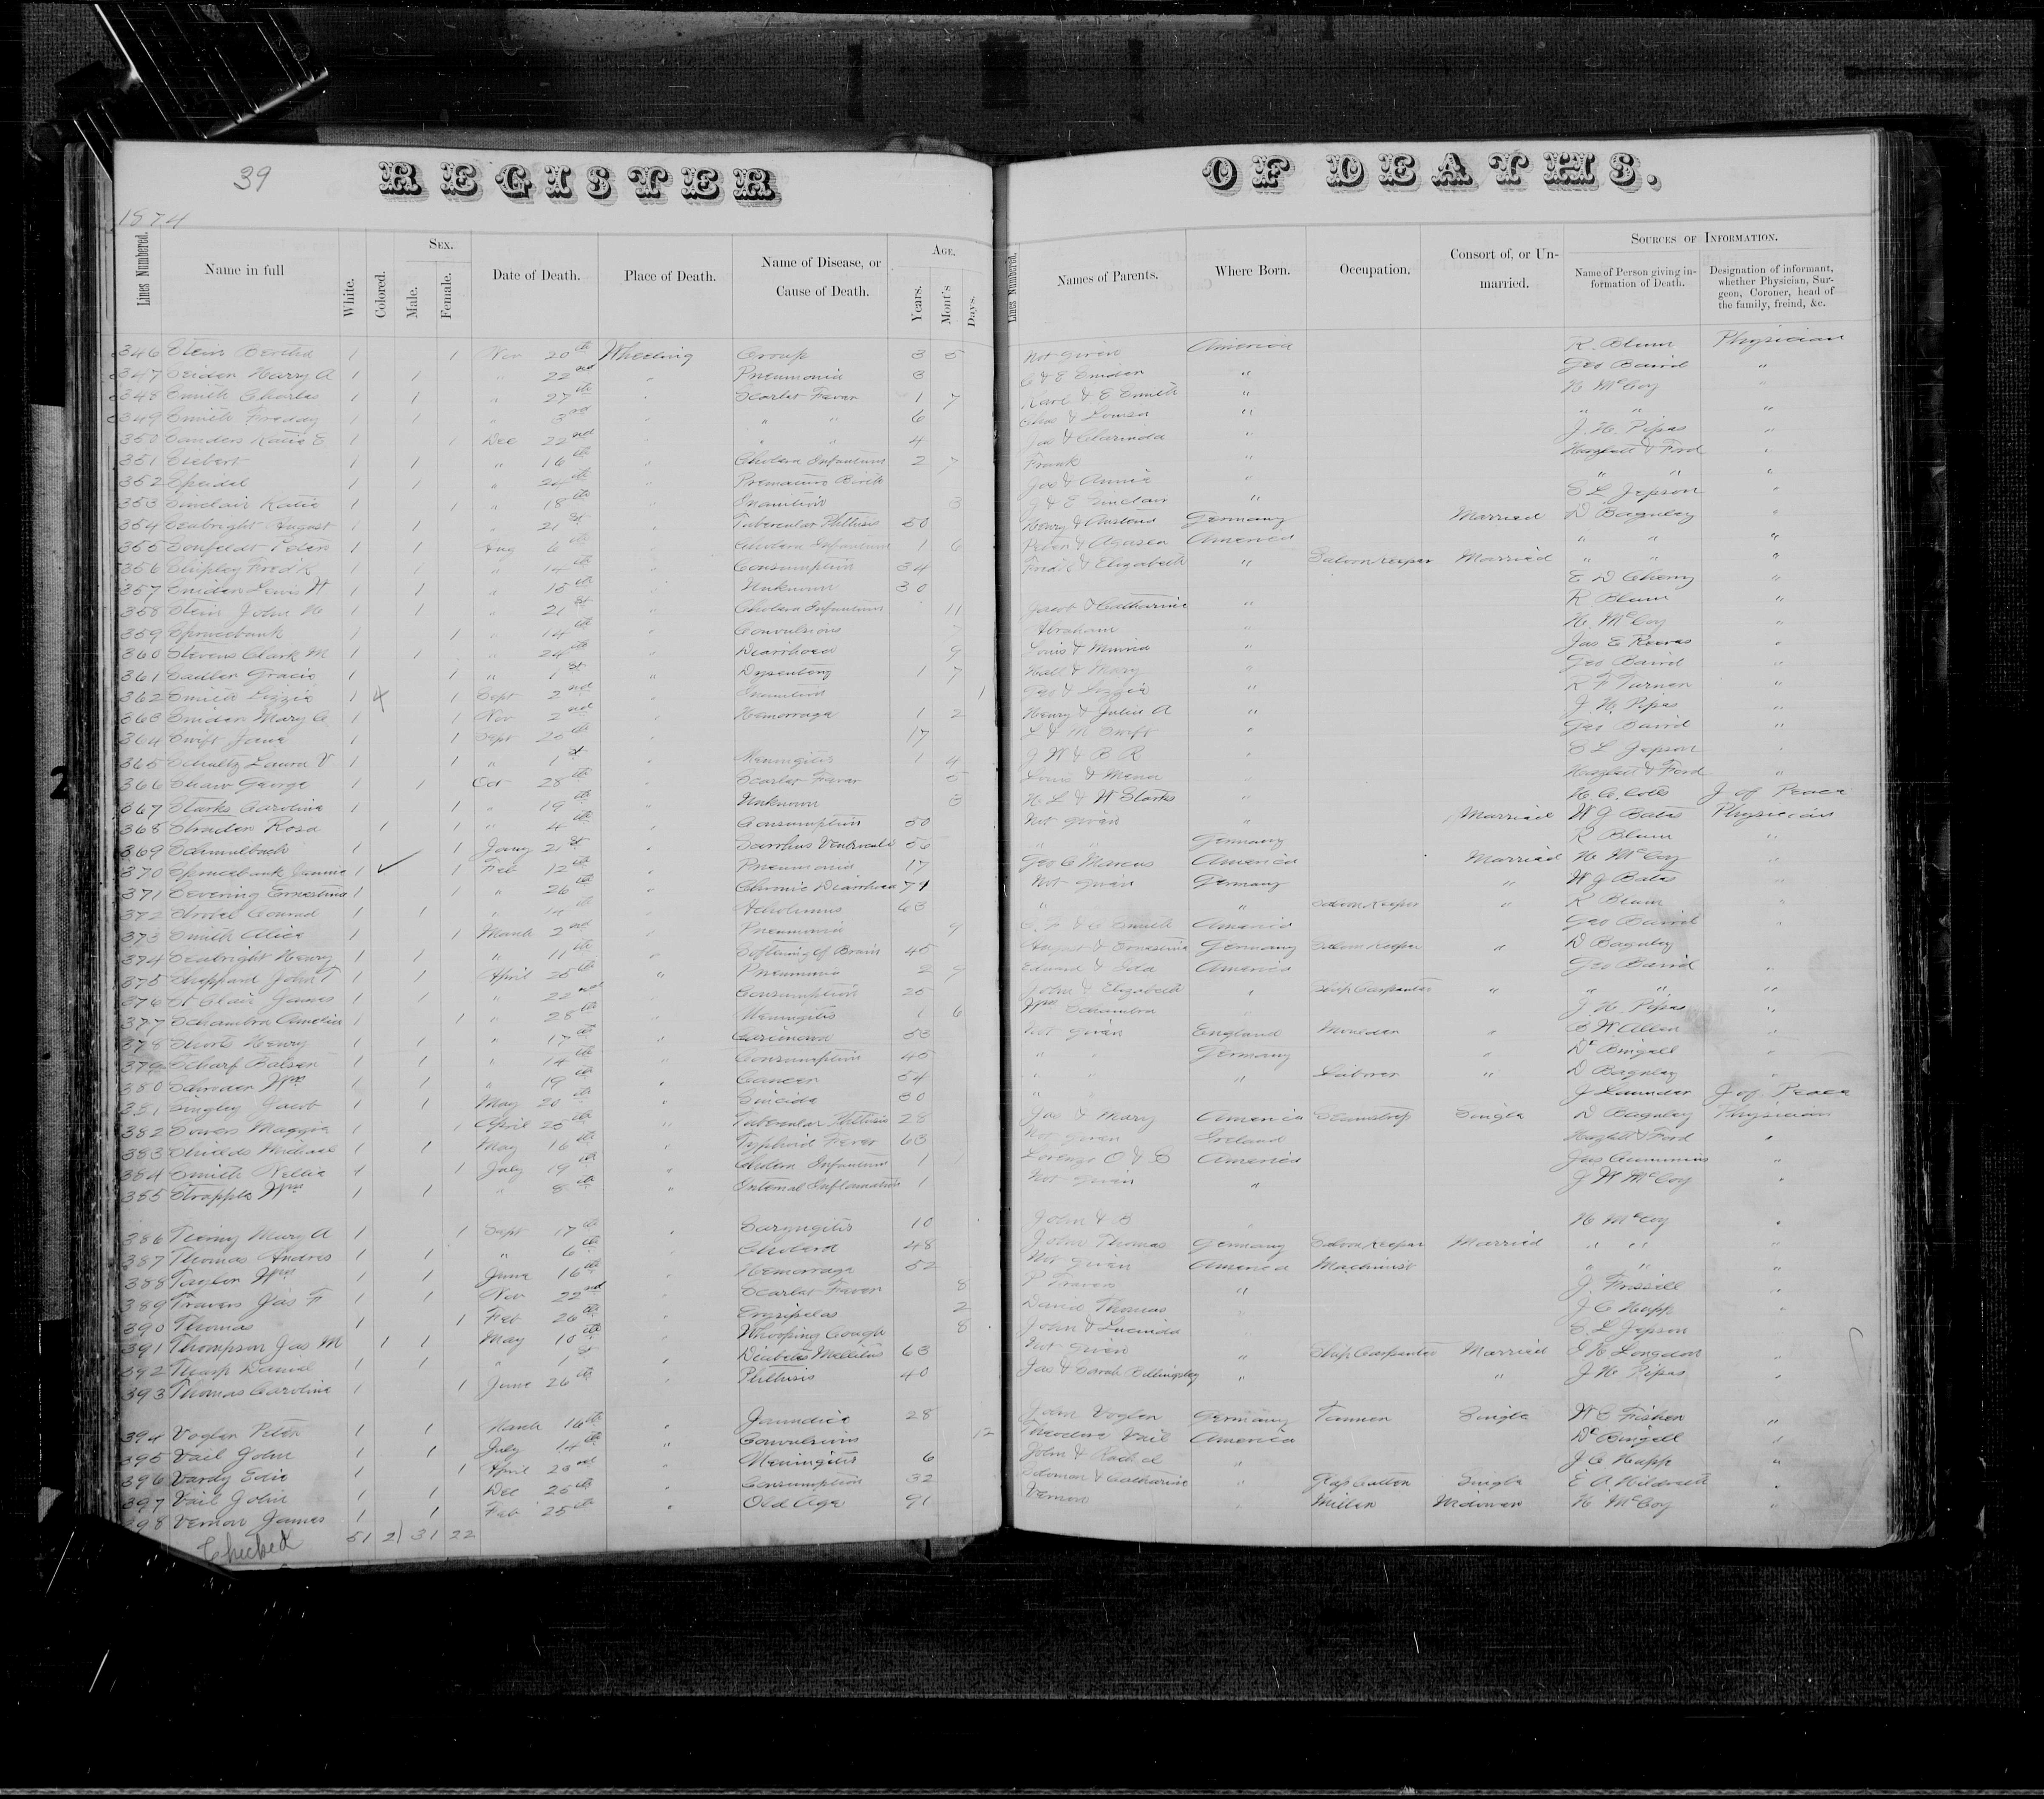 39
REGISTER OF DEATHS.
1874
Lines Numbered. Name in full White. Colored. Sex. Male. Female. Date of Death. Place of Death. Name of Disease, or Cause of Death. Age. Years. Mont's Days. Lines Numbered. Names of Parents. Where Born. Occupation. Consort of, or Unmarried. Sources of Information. Name of Person giving information of Death. Designation of informant, whether Physician, Surgeon, Coroner, head of the family, freind, &c.
346 Stein Bertha 1 1 Nov 20th Wheeling Croup 3 5 Not given America R. Blum Physician
347 Harry A 1 1 " 22nd " Pneumonia 3 " Geo Baird "
348 Smith Charles 1 1 " 27th " Scarlet Fever 1 7 Karl & E Smith " H McCoy "
349 Smith Freddy 1 1 " 3rd " " " 6 Chas & Louisa " " " "
350 Sanders Katie E 1 1 Dec 22nd " " " 4 Jas & Clarinda " J. H. Pipes "
351 Siebert 1 1 " 16th " Cholera Infantum 2 7 Frank " Hazlett & Ford "
352 Speidel 1 1 " 24th " Premature Birth Joe & Annie " " " "
353 Sinclair Katie 1 1 " 18th " Inanition 3 J & E Sinclair " S L Jepson "
354 Seabright August 1 1 " 21st " Tubercular Phthisis 50 Henry & Germany Married D Baguley "
355 Sonfeldt Peter 1 1 Aug 6th " Cholera Infantum 1 6 Peter & America " " "
356 Shipley Fredk 1 1 " 14th " Consumption 34 Fredk & Elizabeth " Saloon Keeper Married " " "
357 Snider Lewis W 1 1 " 15th " Unknown 30 E D Cherry "
358 Stein John H 1 1 " 21st " Cholera Infantum 11 Jacob & Catharine " R. Blum "
359 Sprucebank 1 1 " 14th " Convulsions 7 Abraham " H. McCoy "
360 Stevens Clark M 1 1 " 24th " Diarrhoea 9 Louis & Minnie " Jas E Reeves "
361 Sadler Gracie 1 1 " 1st " Dysentery 1 7 Hall & Mary " Geo Baird "
362 Smith Lizzie 1 1 Sept 2nd " Inanition 1 Geo & Lizzie " R F Turner "
363 Snider Mary C 1 1 Nov 2nd " Hemorrage 1 2 Henry & Julia A " J H Pipes "
364 Swift Jane 1 1 Sept 20th " 17 L & M Swift " Geo Baird "
365 Schultz Laura V 1 1 " 1st " Meningitis 1 4 J W & B R " S L Jepson "
366 Shaw George 1 1 Oct 28th " Scarlet Fever 5 Louis & Mena " Hazlett & Ford "
367 Starks Caroline 1 1 " 19th " Unknown 3 H L & W Starks " H. C. Cole J of Peace
368 Strader Rosa 1 1 " 4th " Consumption 50 Not given " Married W J Bates Physician
369 Schmulbach 1 1 Jany 21st " Scirrhus Ventriculi 56 " " Germany R Blum "
370 Sprucebank Jannie 1 1 Feb 12th " Pneumonia 17 Geo C Marcus America Married H. McCoy "
371 Severing Ernestina 1 1 " 26th " Chronic Diarrhoea 74 Not given Germany " W J Bates "
372 Strobel Conrad 1 1 " 14th " 63 " " Saloon Keeper " R Blum "
373 Smith Alice 1 1 March 2nd " Pneumonia 9 Smith America Geo Baird "
374 Seabright Henry 1 1 " 11th " Softening of Brain 45 August & Ernestine Germany Saloon Keeper " D Baguley
375 Sheppard John T 1 1 April 25th " Pneumonia 2 9 Edward & Ida America Geo Baird "
376 St Clair James 1 1 " 22nd " Consumption 25 John & Elizabeth " Ship Carpenter " " " "
377 Schambra Amelia 1 1 " 28th " Meningitis 1 6 Wm Schambra " J. H. Pipes "
378 Short Henry 1 1 " 17th " Carcinoma 53 Not given England Moulder " S W Allen "
379 Scharf Balser 1 1 " 14th " Consumption 45 " " Germany " Dr Bingell "
380 Schroder Wm 1 1 " 19th " Cancer 54 " " " Laborer " D Baguley "
381 Singley Jacob 1 1 May 20th " Suicide 30 " J Launder J of Peace
382 Sowers Maggie 1 1 April 25th " Tubercular Phthisis 28 Jas & Mary America Seamstress Single D Baguley Physician
383 Shields Michael 1 1 May 16th " Typhoid Fever 63 Not given Ireland Hazlett & Ford "
384 Smith Nellie 1 1 July 19th " Cholera Infantum 1 Lorenzo O & C America Jas Cummins "
385 Strapple Wm 1 1 " 8th " Internal Inflamation 1 Not given " J W McCoy "
386 Tierny Mary A 1 1 Sept 17th " Laryngitis 10 John & B " H McCoy "
387 Thomas Andres 1 1 " 6th " Cholera 48 John Thomas Germany Saloon Keeper Married " " "
388 Taylor Wm 1 1 June 16th " Hemorrage 52 Not given America Machinist " " "
389 Travers Jas F 1 1 Nov 22nd " Scarlet Fever 8 P Travers " J. Frissill "
390 Thomas 1 1 Feb 26th " Erysipelas 2 David Thomas J C Hupp "
391 Thompson Jas M 1 1 May 10th " Whooping Cough 8 John & Lucinda S L Jepson
392 Tharp Daniel 1 1 " 1st " Diabetes Mellitus 63 Not given " Ship Carpenter Married J H Longdon "
393 Thomas Caroline 1 1 June 26th " Phthisis 40 Jas & Sarah Billingsley " " J H. Pipes "
394 Vogler Peter 1 1 March 16th " Jaundice 28 John Vogler Germany Tanner Single W C Fisher "
395 Vail John 1 1 July 14th " Convulsions 12 Theodore Vail America Dr Bingell "
396 Vardy Edie 1 1 April 23rd " Meningitis 6 John & Rachel " J C Hupp "
397 Vail John 1 1 Dec 25th " Consumption 32 Solomon & Catharine " Glass Cutter Single E A. Hildreth "
398 Vernon James 1 1 Feb 25th " Old Age 91 Vernon " Miller Widower H McCoy "
Checked 51 2 31 22